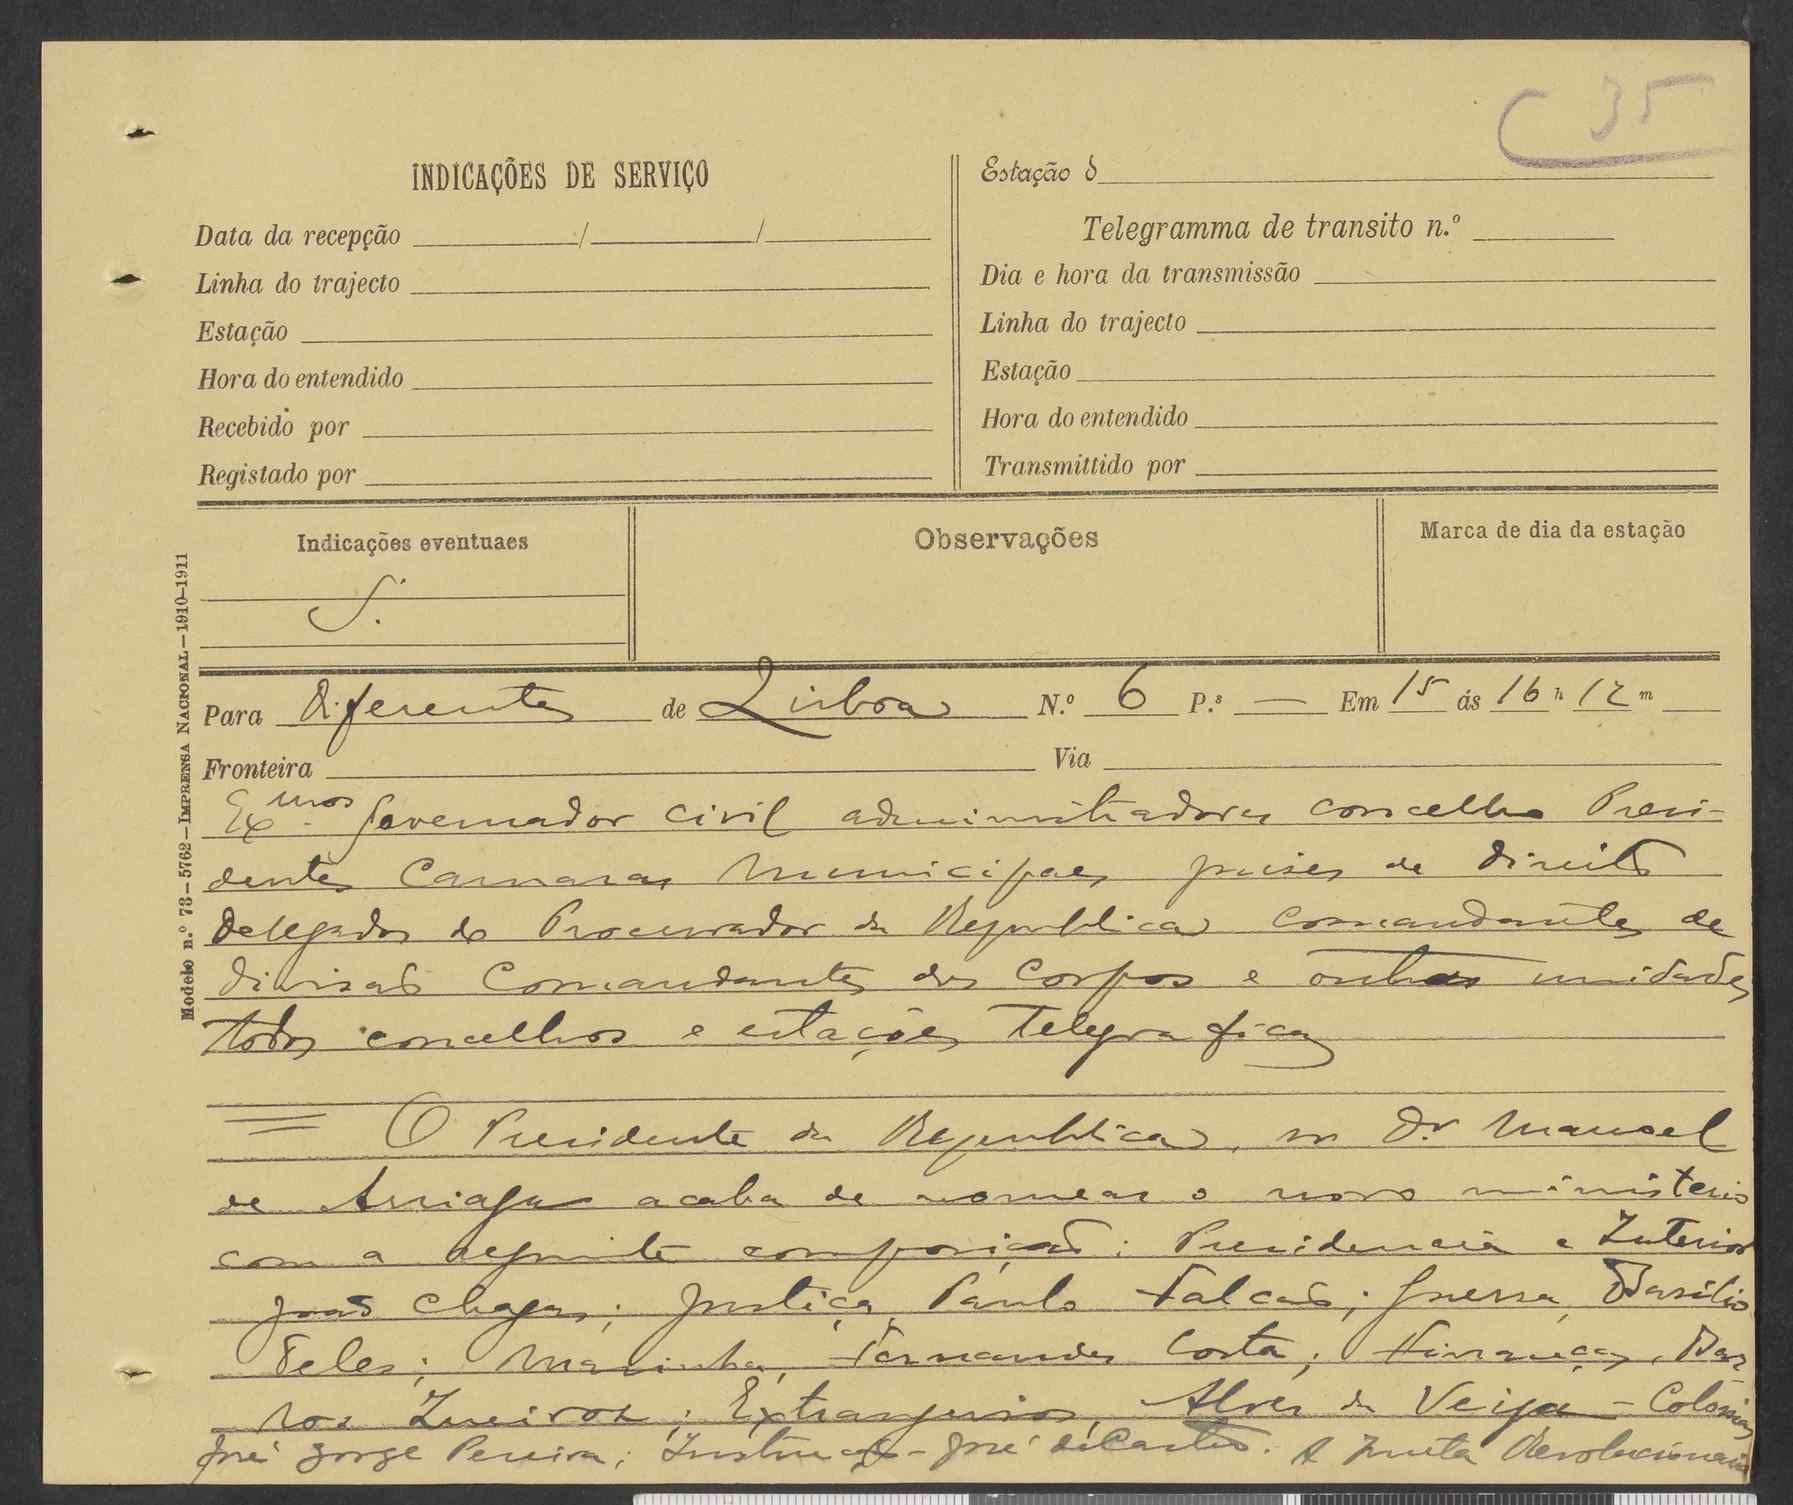 C 35
INDICAÇÕES DE SERVIÇO
Data da recepção / /
Linha do trajecto
Estação
Hora do entendido
Recebido por
Registado por
Estação d
Telegramma de transito n.º
Dia e hora da transmissão
Linha do trajecto
Estação
Hora do entendido
Transmittido por
Indicações eventuaes
S.
Observações
Marca de dia da estação
Modelo n.º 73—5762—IMPRENSA NACIONAL—1910-1911
Para Diferentes de Lisboa N.º 6 P.s — Em 15 ás 16 h 12 m
Fronteira Via
Exmos Governador civil administradores concelho Presi-
dentes Camaras Municipaes juises de Direito
Delegados do Procurador da Republica comandantes de
divisão Comandantes dos corpos e outras unidades
todos concelhos e estações telegraficas
= O Presidente da Republica, sr Dr. Manoel
de Arriaga acaba de nomear o novo ministerio
com a seguinte composição: Presidencia e Interior
João Chagas; Justiça, Paulo Falcão; Guerra, Basilio
Teles; Marinha, Fernandes Costa; Finanças, Bar
ros Queiroz; Extrangeiros, Alves da Veiga – Colónias
José Jorge Pereira; Instrucção – José de Castro. A Junta Revolucionaria